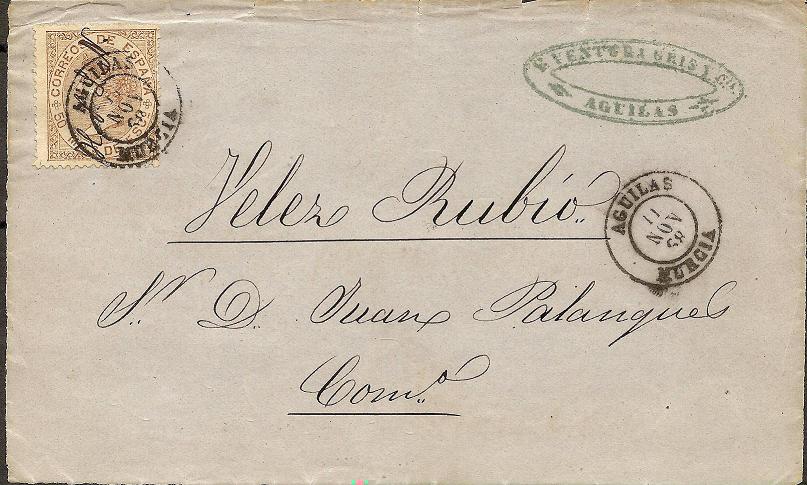 CORREOS DE ESPAÑA
50
AGUILAS
NOV
68
MURCIA
VENTURA GRIS Y Cia
AGUILAS
Velez Rubio.
AGUILAS
11
NOV
68
MURCIA
Sr. D. Juan Palanques
Com.o